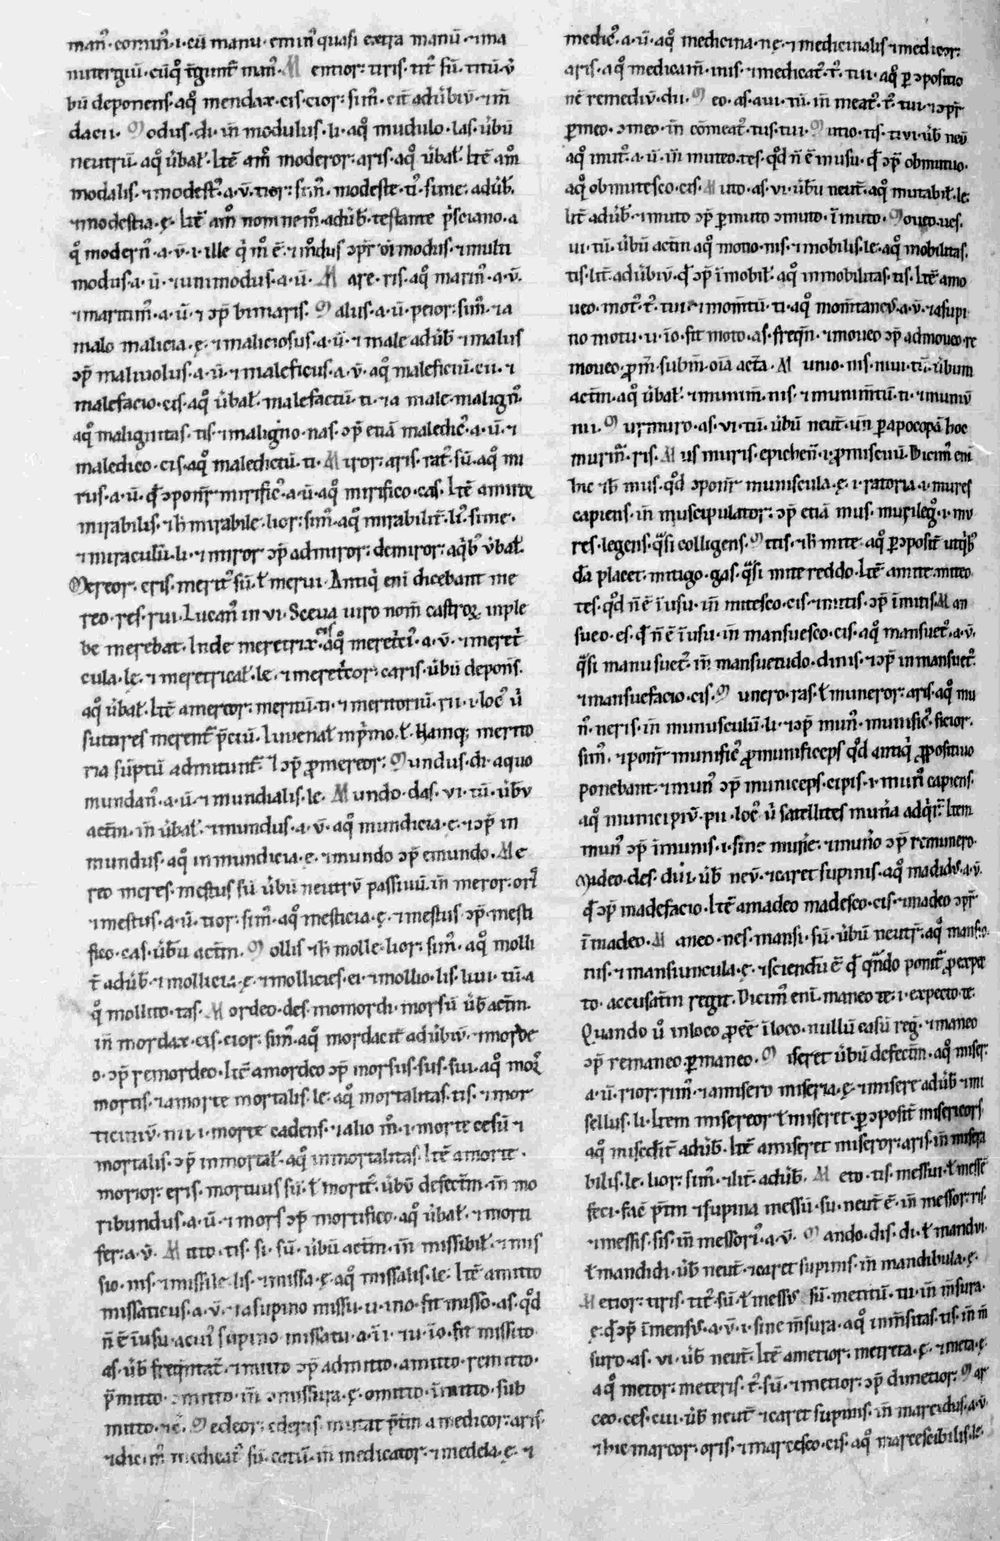 man̄·comin̄·i·cū manu·emin̄ quasi extra manū·⁊ma
nutergiū·cūq̄ tgunt̄ man̄· M entior·tiris·tit̄ sū·titū·v̄
bū deponens·aq̄ mendax·cis·cior·sim̄·cit̄ adūbiv̄·⁊m
dacii· Modus·di·in̄ modulus·li·aq̄ modulo·las·ūbū
neutrū·aq̄ ūbal̄·Itē am̄ moderor·aris·aq̄ ūbal̄·Itē am̄
modalis·⁊modest̄·a·v̄·tior·sim̄·modeste·ti·sime·adūb̄·
⁊modestia·ę·Itē am̄ nomine m̄·adūb̄·testante p̄sciano·a
q̄ modern̄·a·v̄·i·ille q̄ m̄ ē·⁊ m̄dus ɔpr̄ oī modus·⁊multi
modus·a·ū·⁊unimodus·a·ū· Mare·ris·aq̄ marin̄·a·v̄·
⁊maritim̄·a·ū·⁊ ɔp̄ bimaris· Malus·a·ū·peior·sim̄·⁊a
malo malicia·ę·⁊maliciosus·a·ū·⁊male adūb̄ ⁊malus
ɔp̄ malivolus·a·ū·⁊maleficus·a·v̄·aq̄ maleficiū·cii·⁊
malefacio·cis·aq̄ ūbal̄·malefactū·ti·⁊a male·malign̄·
aq̄ malignitas·tis·⁊maligno·nas·ɔp̄ etiā maledic̄·a·ū·⁊
maledico·cis·aq̄ maledictū·ti· Miror·aris·rat̄·sū·aq̄ mi
rus·a·ū·q̄ ɔponr̄ mirific̄·a·ū·aq̄ mirifico·cas·Itē a miror
mirabilis·⁊h mirabile·lior·sim̄·aq̄ mirabilit̄·li·sime·
⁊miraculū·li·⁊miror ɔp̄ admiror·demiror·aq̄b v̄bal̄·
Mereor·eris·merit̄ sū·l̄ merui·Antiq̄ eni dicebant me
reo·res·rui·Lucan̄ in vi·Sceva viro nom̄ castroꝝ inple
be merebat·Inde meretrix·aq̄ meretici·a·v̄·⁊meret̄
cula·le·⁊meretrical̄·le·⁊meret̄cor·caris·ūbū depon̄s·
aq̄ ūbal̄·Itē amereor·meritū·ti·⁊meritoriū·rii·i·loc̄ ū
sutores merent̄ p̄ciū·Iuvenal̄ inp̄imo·l̄·Namq; merito
ria sūptū admitunt̄·l̄ ɔp̄ p̄mereor· Mundus·di·aquo
mundan̄·a·ū·⁊mundialis·le· Mundo·das·vi·tū·ūbv̄
actin̄·in̄ ūbal̄·⁊mundus·a·v̄·aq̄ mundicia·ę·⁊ɔp̄ in
mundus·aq̄ inmundicia·ę·⁊mundo ɔp̄ emundo· Me
reo meres·mestus sū ūbū neutrv̄ passivū·in̄ meror·oris
⁊mestus·a·ū·tior·sim̄·aq̄ mesticia·ę·⁊mestus ɔp̄·mesti
fico·cas·ūbū actin̄· Mollis·⁊h molle·lior·sim̄·aq̄ molli
t̄ adūb̄·⁊mollicia·ę·⁊mollicies·ei·⁊mollio·lis·livi·tū·a
q̄ mollito·tas· Mordeo·des·momordi·morsū ūb̄ actin̄·
in̄ mordax·cis·cior·sim̄·aq̄ mordacit̄ adūbiv̄·⁊morde
o·ɔp̄ remordeo·Itē amordeo ɔp̄ morsus·sus·sui·aq̄ mor
mortis·⁊amorte mortalis·le·aq̄ mortalitas·tis·⁊mor
ticiniv̄·nii·i·morte cadens·⁊alio m̄·i·morte cesū ⁊
mortalis·ɔp̄ inmortal̄·aq̄ inmortalitas·Itē amorte·
morior·eris·mortuus sū·l̄ mort̄·ūbū defectin̄·in̄ mo
ribundus·a·ū·⁊mors ɔp̄ mortifico·aq̄ ūbal̄·⁊morti
fer·a·v̄· Mitto·tis·si·sū·ūbū actin̄·in̄ missibil̄·⁊mis
sio·nis·⁊missile·lis·⁊missa·ę·aq̄ missalis·le·Itē amitto
missaticus·a·v̄·⁊a supino missū·u·ino·fit misso·as·q̄d
n̄ ē ī usu·acui supino missatu·a·ī·⁊u·īo·fit missito
as·ūb̄ freq̄ntat̄·⁊mitto ɔp̄ admitto·amitto·remitto·
p̄mitto·ɔmitto·in̄ ɔmissura·ę·omitto·īmitto·sub
mitto·⁊c̄· Medeor·ederis·mutat p̄tin̄ amedicor·aris·
⁊dic̄·m̄ medicat̄ sū·catū·in̄ medicator·⁊medela·ę·⁊
medic̄·a·ū·aq̄ medicina·nę·⁊medicinalis ⁊medicor·
aris·aq̄ medicam̄·inis·⁊medicat̄·t̄·tui·aq̄ p̄ ɔpositio
nē remediv̄·dii· Meo·as·avi·tū·in̄ meat̄·t̄·tui·⁊ɔpr̄
p̄meo·ɔmeo·in̄ cōmeat̄·tus·tui· Mutio·tis·tivi·ūb̄ neū
aq̄ mut̄·a·ū·in̄ muteo·tes·q̄d n̄ ē in usu·q̄ ɔp̄ obmutuo·
aq̄ obmutesco·cis· Muto·as·vi·ūbū neut̄·aq̄ mutabil̄·le·
lit̄ adūb̄·⁊muto ɔp̄ p̄muto ɔmuto·īmuto· Moveo·ves·
vi·tū·ūbū actin̄ aq̄ motio·nis·⁊mobilis·le·aq̄ mobilitas·
tis·lit̄·adūbiv̄·q̄ ɔp̄ īmobil̄·aq̄ inmobilitas·tis·Itē amo
veo·mot̄·t̄·tui·⁊mom̄tū·ti·aq̄ mom̄tanev̄·a·v̄·⁊a supi
no motu·u·īo·fit moto·as·freq̄n̄·⁊moveo ɔp̄ admoveo·re
moveo·p̄m̄·subm̄·oīa acta· Munio·nis·nivi·tū·ūbum
actin̄·aq̄ ūbal̄·⁊munim̄·nis·⁊munim̄tū·ti·⁊muniu
nii· Murmuro·as·vi·tū·ūbū neut̄·un̄ p̄apocopā hoc
murm̄·ris· Mus muris·epichen̄·i·p̄miscuū·Dicim̄ eni
hic ⁊h mus·q̄d ɔponr̄ muniscula·ę·i·ratoria·i·mures
capiens·in̄ muscipulator·ɔp̄ etiā mus·murileḡ·i·mu
res·legens·q̄si colligens· Mitis·⁊h mite·aq̄ p̄ɔposit̄ utq̄b
dā placet·mitigo·gas·q̄si mite reddo·Itē amite·miteo
tes·q̄d n̄ ē ī usu·in̄ mitesco·cis·⁊mitis·ɔp̄ īmitis· Man
sueo·es·q̄ n̄ ē ī usu·in̄ mansuesco·cis·aq̄ mansuet̄·a·v̄·
q̄si manu suet̄·in̄ mansuetudo·dinis·⁊ɔp̄ inmansuet̄·
⁊mansuefacio·cis· Munero·ras·l̄ muneror·aris·aq̄ mu
n̄·neris·in̄ munusculū·li·⁊ɔp̄ mun̄·munific̄·ficior·
sim̄·⁊ponr̄ munific̄ p̄municeps q̄d antiq̄ p̄positivo
ponebant·⁊mun̄ ɔp̄ municeps·cipis·i·mun̄ capiens·
aq̄ municipiv̄·pii·loc̄ ū satellites mun̄a adq̄r̄t·Item
mun̄ ɔp̄ īmunis·i·sine mun̄e·⁊mun̄o ɔp̄ remunero·
Madeo·des·dui·ūb̄ nev̄·⁊caret supinis·aq̄ madidus·a·v̄·
q̄ ɔp̄ madefacio·Itē amadeo madesco·cis·⁊madeo ɔpr̄
īmadeo· Maneo·nes·mansi·sū·ūbū neutr̄·aq̄ mansio·
nis·⁊mansiuncula·ę·⁊sciendū ē q̄ q̄ndo ponit̄ p̄expe
to·accusatin̄ regit·Dicim̄ eni·maneo te·i·expecto te·
Quando ū inloco p̄ eē ī loco·nullū casū reḡ·⁊maneo
ɔp̄ remaneo·p̄maneo· Miseret ūbū defectin̄·aq̄ miser·
a·ū·rior·rim̄·⁊amisero miseria·ę·⁊misere adūb̄·⁊mi
sellus·li·Item misereor l̄ miseret·p̄ ɔposit̄ misericors
aq̄ misc̄dit̄ adūb̄·Itē amiseret miseror·aris·in̄ misera
bilis·le·lior·sim̄·⁊lit̄·adūb̄· Meto·tis·messui·l̄ messē
feci·faē p̄tin̄ ⁊supina messū·su·neut̄ ē·in̄ messor·ris·
⁊messis·sis·in̄ messori·a·v̄· Mando·dis·di·l̄ mandvi
l̄ mandidi·ūb̄ neut̄·⁊caret supinis·in̄ mandibula·ę·
Metior·tiris·tit̄·sū·l̄ messv̄ sū·mentiū·tu·in̄ m̄sura·
ę·q̄ ɔp̄ īmens·a·v̄·i·sine m̄sura·aq̄ inm̄sitas·tis·in̄ m̄
suro·as·vi·ūb̄ neut̄·Itē ametior·metreta·ę·⁊meta·ę·
aq̄ metor·meteris·t̄·sū·⁊metior·ɔp̄ dimetior· Mar
ceo·ces·cui·ūb̄ neut̄ ⁊caret supinis·in̄ marcidus·a·v̄
⁊hic marcor·oris·⁊marcesco·cis·aq̄ marcescibilis·le·